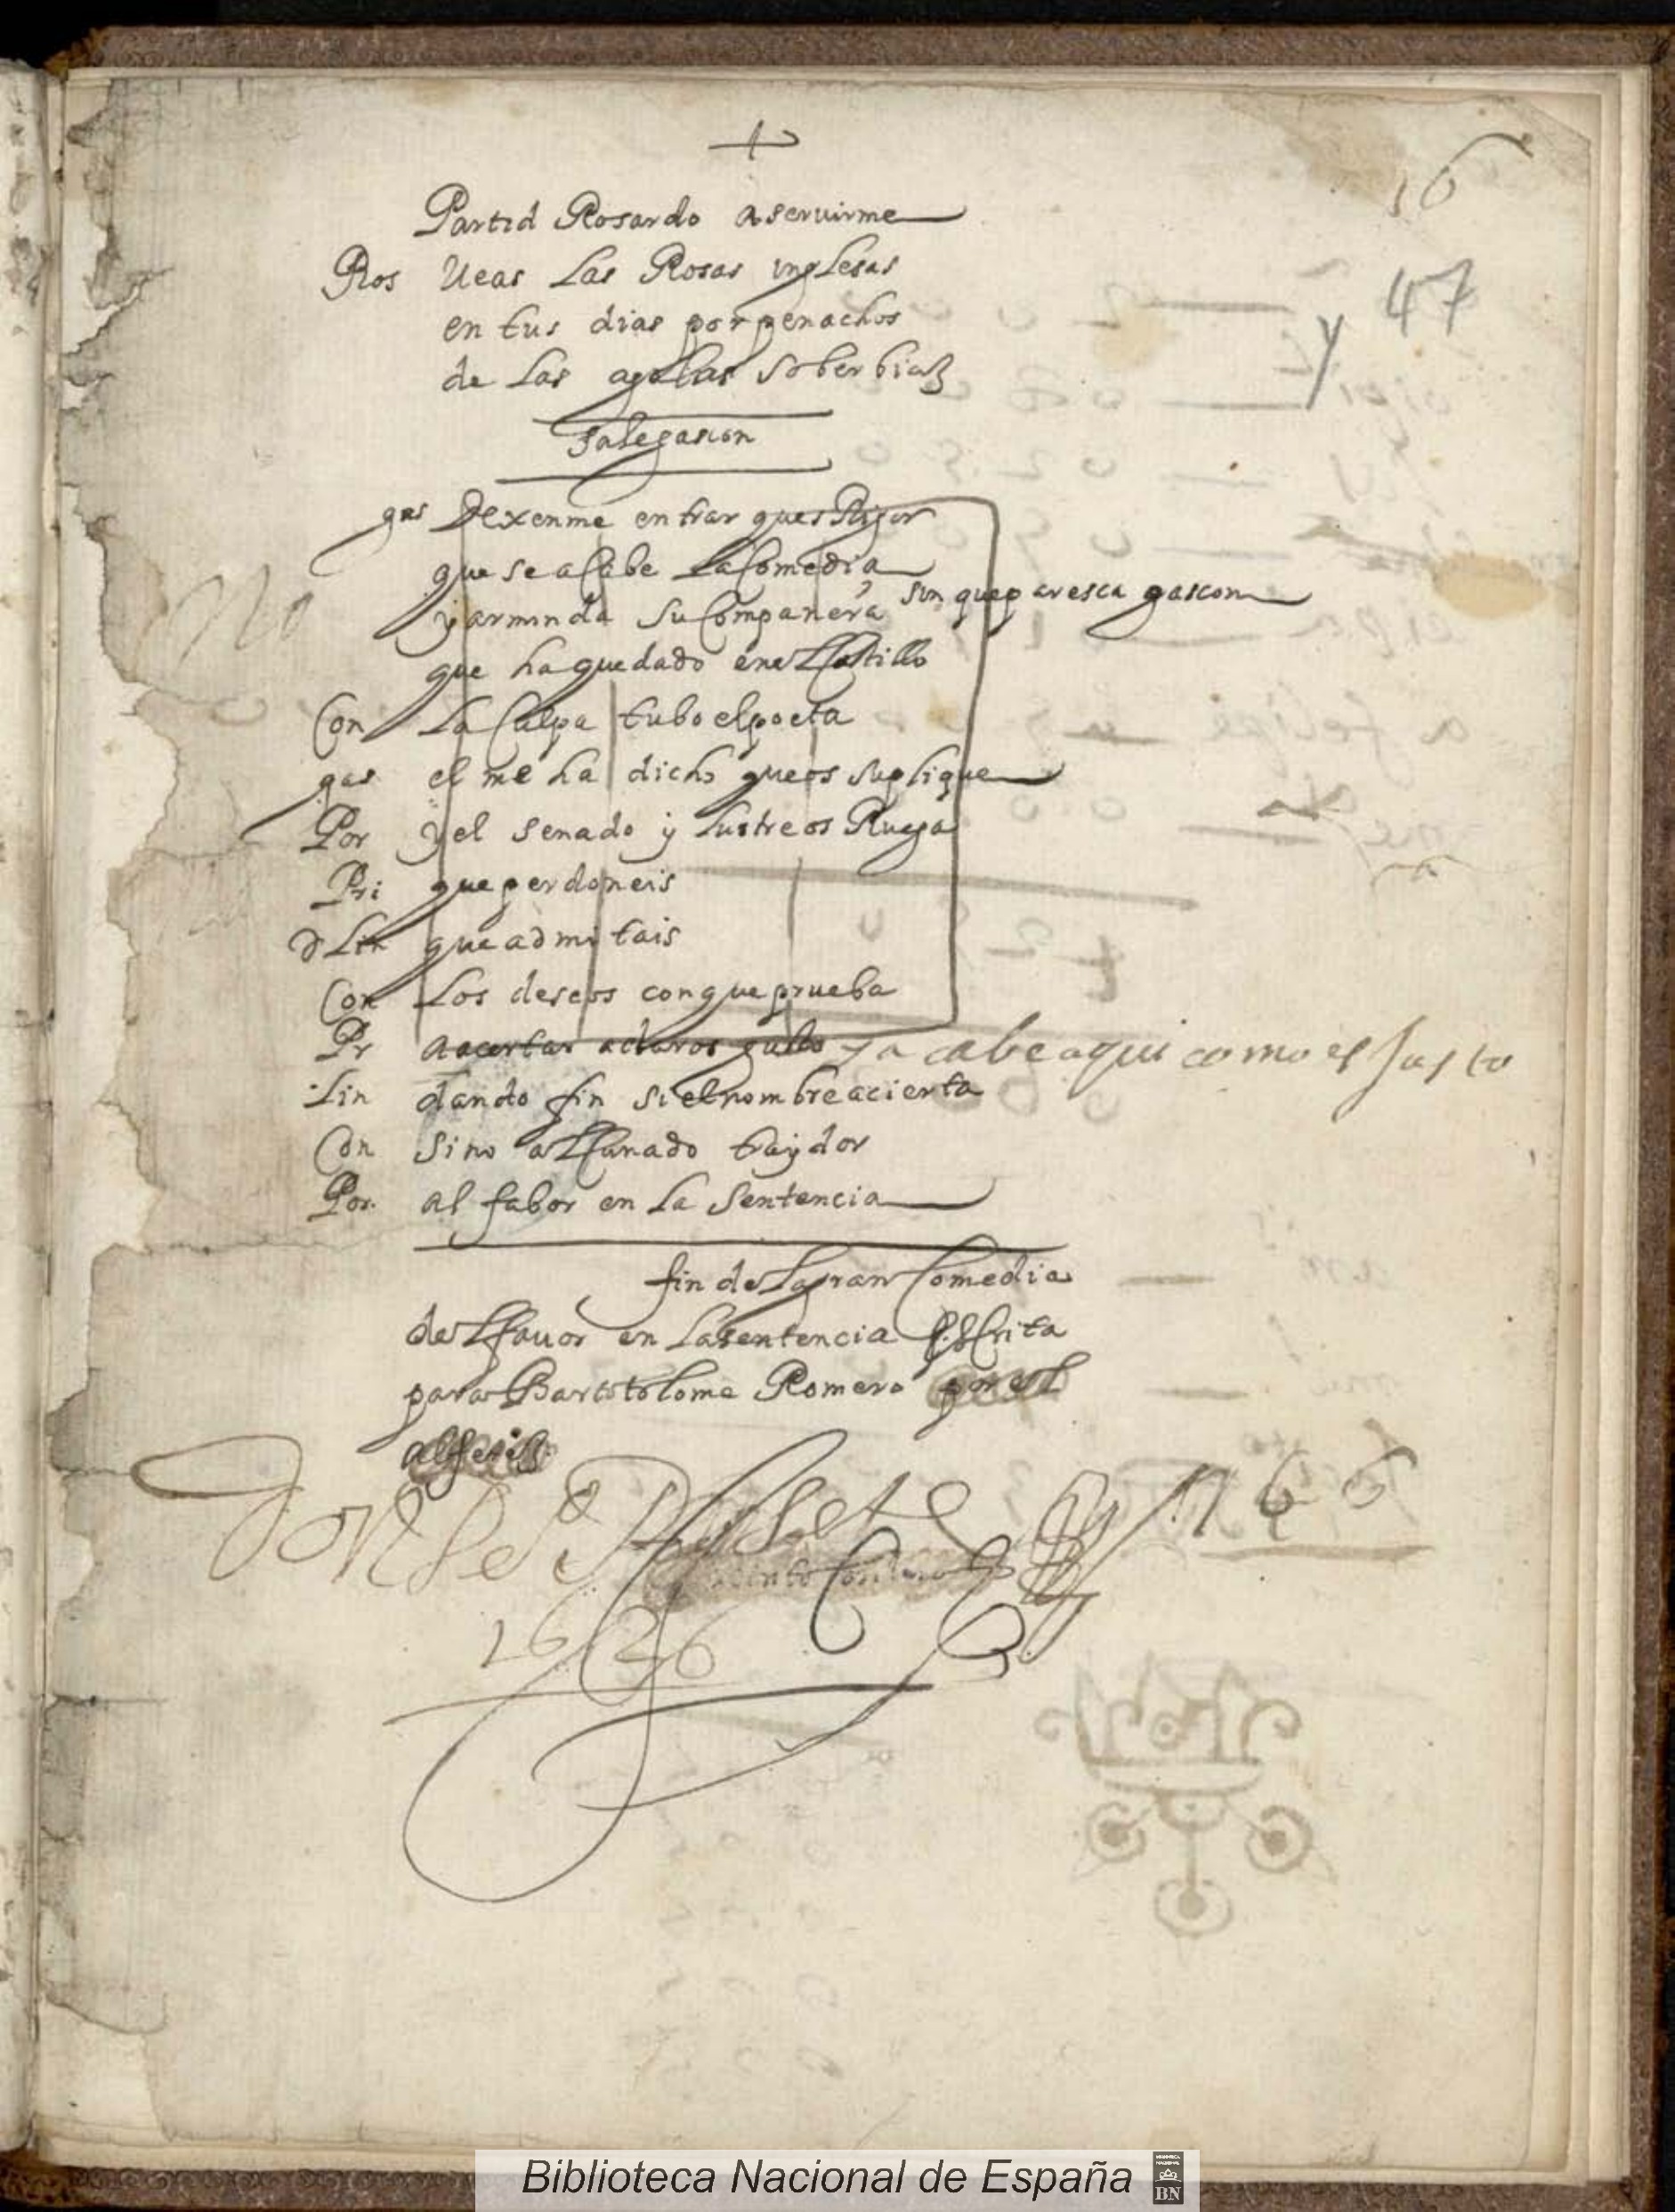 16
47
y
Partid Rosardo a seruirme
Ros Ueas Las Rosas inglesas
en tus dias por penachos
de Las agilas soberbias
Sale gascon
gas Dexenme entrar ques Rigor
que se acabe La Comedia
sin que paresca gascon
y arminda su Compañera
que ha quedado en el Castillo
Con La Culpa tubo el poeta
gas el me ha dicho que os suplique
Por y el senado y lustre os Ruega
Pri que perdoneis
Lin que admitais
Con Los deseos con que prueba
Pr a acertar a daros gusto y acabe aqui como es Justo
Lin dando fin si el nombre acierta
Con Sino al Hurtado traydor
Por. al fabor en La Sentencia
No
fin de La gran Comedia
del fauor en La sentencia Escrita
para Bartotolome Romero por el
alferes
Don
1626
166
Biblioteca Nacional de España
BN